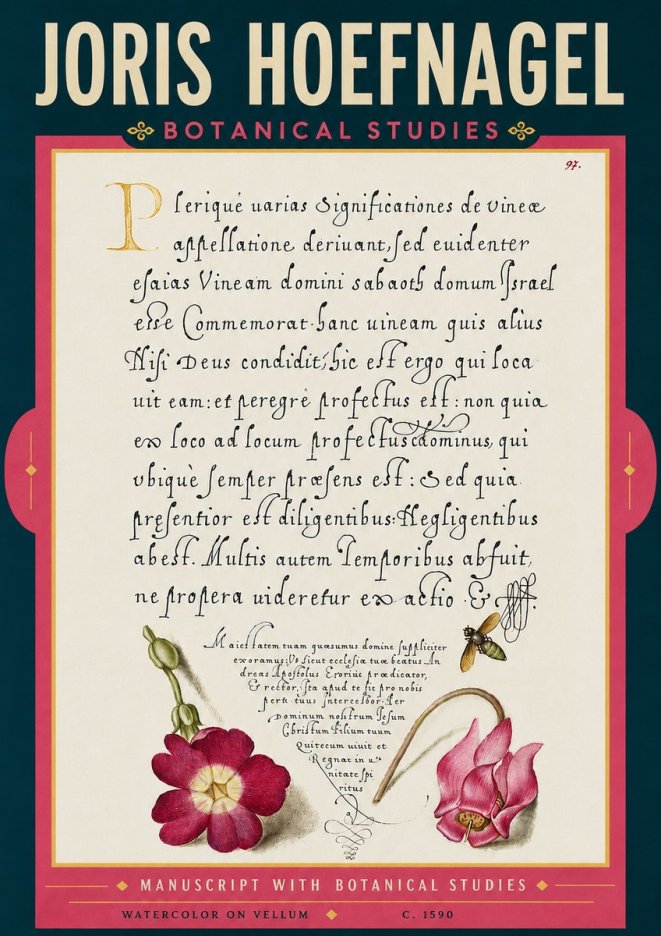 JORIS HOEFNAGEL
BOTANICAL STUDIES
97.
Pleriquè uarias Significationes de vineæ
appellatione deriuant, sed euidenter
esaias Vineam domini sabaoth domum Israel
esse Commemorat. hanc uineam quis alius
Nisi Deus condidit; hic est ergo qui loca
uit eam: et peregrè profectus est: non quia
ex loco ad locum profectus dominus, qui
vbiquè semper præsens est: Sed quia
præsentior est diligentibus: Negligentibus
abest. Multis autem Temporibus abfuit,
ne propera uideretur exactio. &
Maiestatem tuam quæsumus domine suppliciter
exoramus: Vt sicut ecclesia tuæ beatus An
dreas Apostolus Extitit prædicator,
& rector, Ita apud te sit pro nobis
perpetuus Intercessor. Per
Dominum nostrum Iesum
Christum Filium tuum
Qui tecum uiuit et
Regnat in u
nitate spi
ritus
MANUSCRIPT WITH BOTANICAL STUDIES
WATERCOLOR ON VELLUM C. 1590